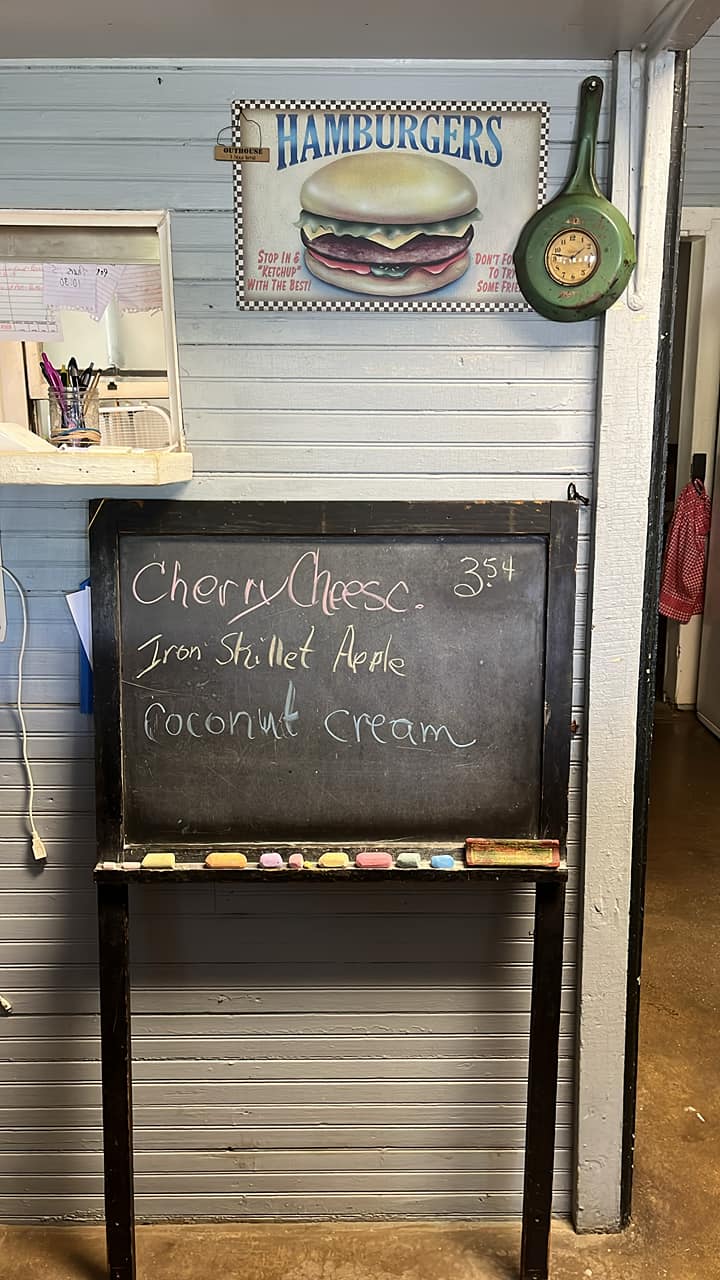 HAMBURGERS
OUTHOUSE
STOP IN &
"KETCHUP"
WITH THE BEST!
DON'T
TO
SOME
Cherry Cheesc. 3.54
Iron Skillet Apple
Coconut cream